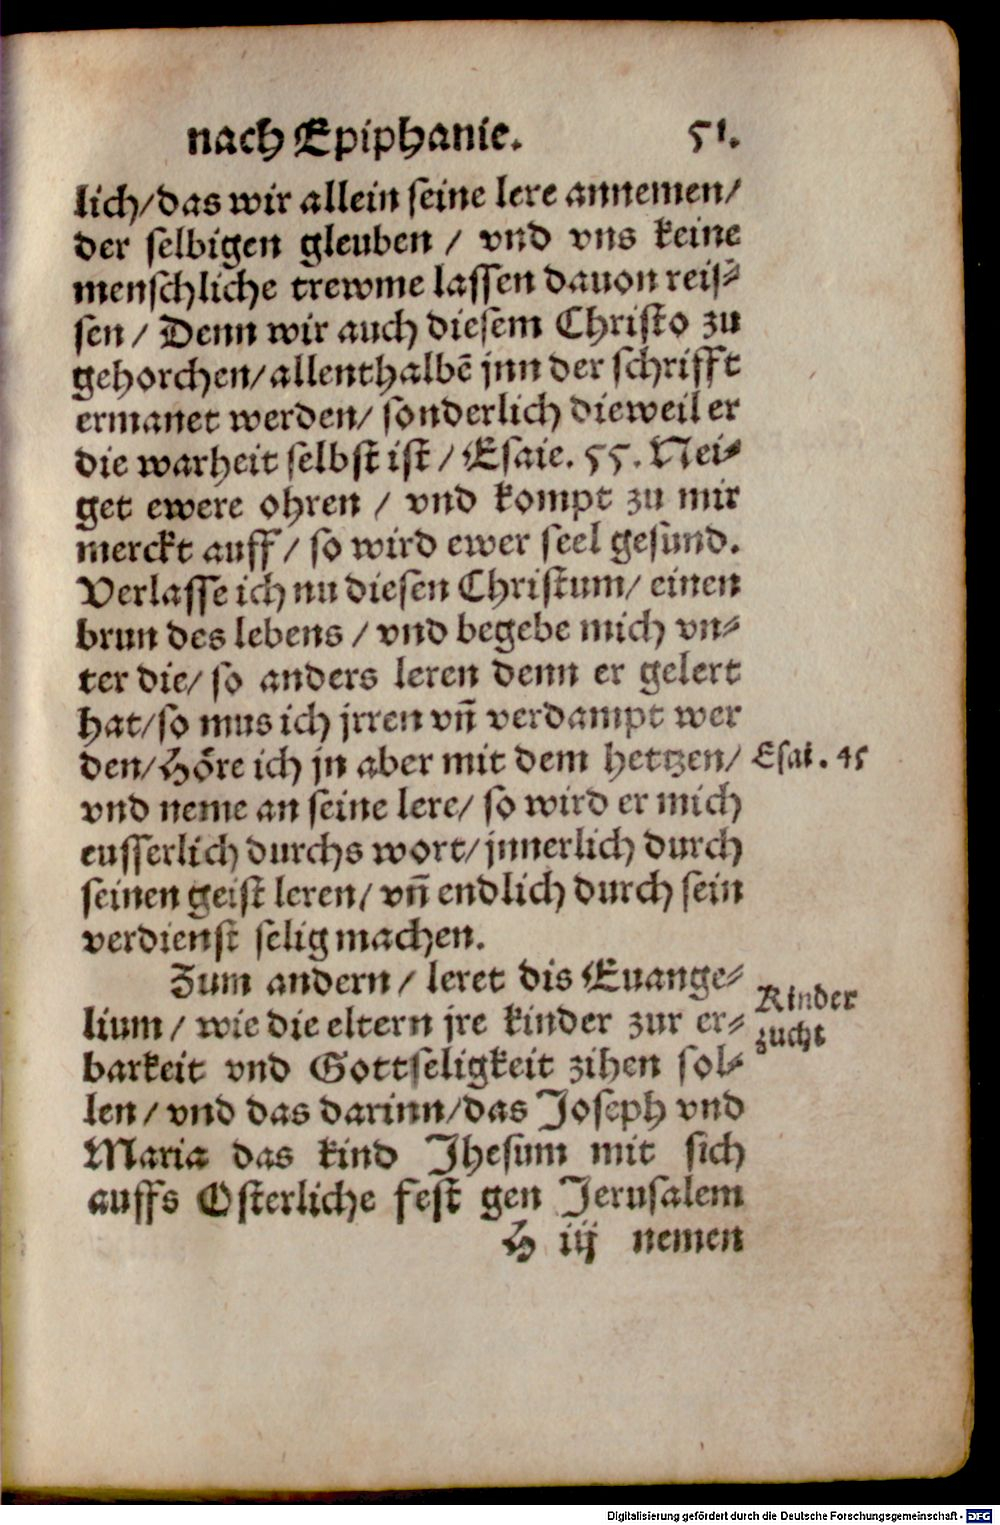 nach Epiphanie. 51.
lich/das wir allein seine lere annemen/
der selbigen gleuben / vnd vns keine
menschliche trewme lassen dauon reis⸗
sen / Denn wir auch diesem Christo zu
gehorchen/allenthalbē jnn der schrifft
ermanet werden/ sonderlich dieweil er
die warheit selbst ist / Esaie. 55. Nei⸗
get ewere ohren / vnd kompt zu mir
merckt auff / so wird ewer seel gesund.
Verlasse ich nu diesen Christum/ einen
brun des lebens / vnd begebe mich vn⸗
ter die/ so anders leren denn er gelert
hat/so mus ich jrren vn̄ verdampt wer
den/Höre ich jn aber mit dem hertzen/ Esai. 45
vnd neme an seine lere/ so wird er mich
eusserlich durchs wort/jnnerlich durch
seinen geist leren/ vn̄ endlich durch sein
verdienst selig machen.
Zum andern / leret dis Euange⸗
lium / wie die eltern jre kinder zur er⸗
barkeit vnd Gottseligkeit zihen sol⸗
len / vnd das darinn/das Joseph vnd
Maria das kind Jhesum mit sich
auffs Osterliche fest gen Jerusalem
Kinder
zucht
H iij nemen
Digitalisierung gefördert durch die Deutsche Forschungsgemeinschaft - DFG